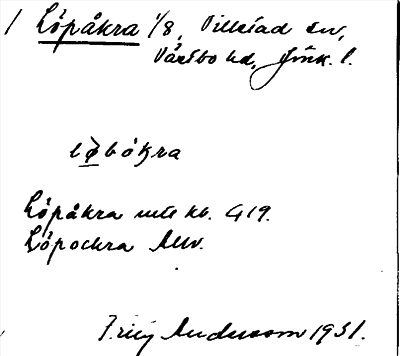 1 Löpåkra 1/8, Villstad sn,
Västbo hd, Jönk. l.
løbókra
Löpåkra mtl kb. 419.
Löpochra
Andersson 1931.